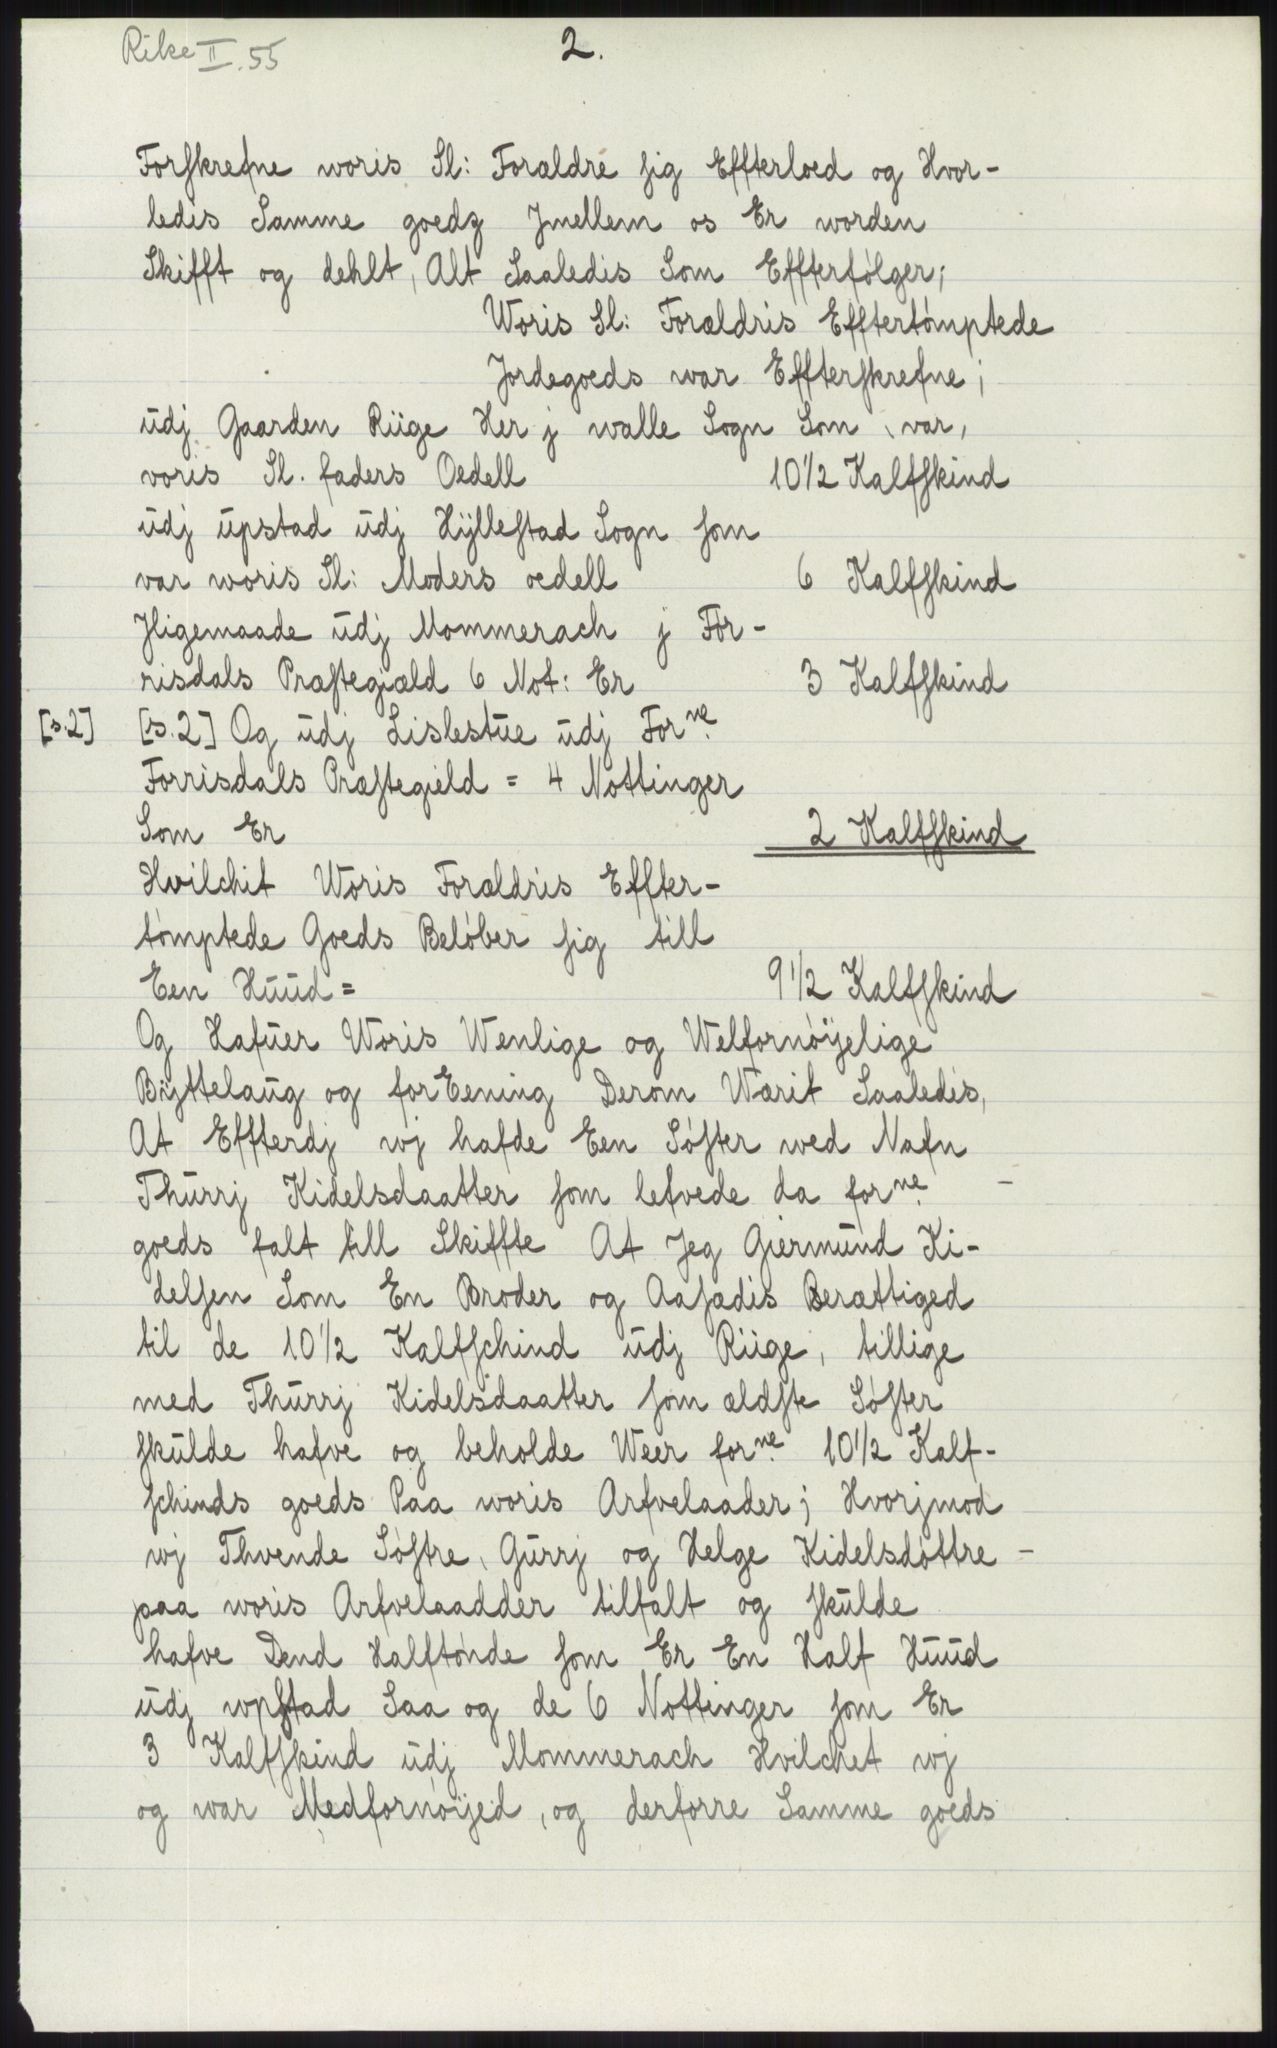 Rike II. 55
2.
Forskrefne woris Sl: Forældre sig Effterloed og Hvor-
ledis Samme goedz Jmellem os Er worden
Skifft og dehlt, Alt Saaledis Som Effterfølger;
Woris Sl: Forældris Efftertømptede
Jordegoeds war Effterskrefne;
udj Gaarden Riige Her j walle Sogn Som var,
voris Sl. faders Oedell 10 1/2 Kalfskind
udj upstad udj Hÿllestad Sogn som
var woris Sl: Moders oedell 6 Kalfskind
Jligemaade udj Mommerach j For-
risdals Præstegiæld 6 Not: Er 3 Kalfskind
[s.2] [s.2] Og udj Lislestue udj Forne
Forrisdals Præstegield = 4 Nottinger
Som Er 2 Kalfskind
Hvilchit Woris Forældris Effter-
tømptede Goeds Beløber sig till
Een Huud = 9 1/2 Kalfskind
Og Hafuer Woris Wenlige og Welfornøÿelige
Bÿttelaug og forEening Derom Wærit Saaledis,
At Effterdj wj hafde Een Søster wed Nafn
Thurrj Kidelsdaatter som lefvede da forne –
goeds falt till Skiffte At Jeg Giermund Ki-
delsen Som En Broder og Aasædis Berættiged
til de 10 1/2 Kalfschind udj Riige, tillige
med Thurrj Kidelsdaatter som ældste Søster
skulde hafve og beholde Weer forne 10 1/2 Kalf-
schinds goeds Paa woris Arfvelaader; Hvorjmod
wj Thvende Søstre, Gurrj og Helge Kidelsdøttre –
paa woris Arfvelaadder tilfalt og skulde
hafve Dend Halftønde som Er En Half Huud
udj wpstad Saa og de 6 Nottinger som Er
3 Kalfskind udj Mommerach Hvilchet wj
og war Medfornøÿed, og derforre Samme goeds